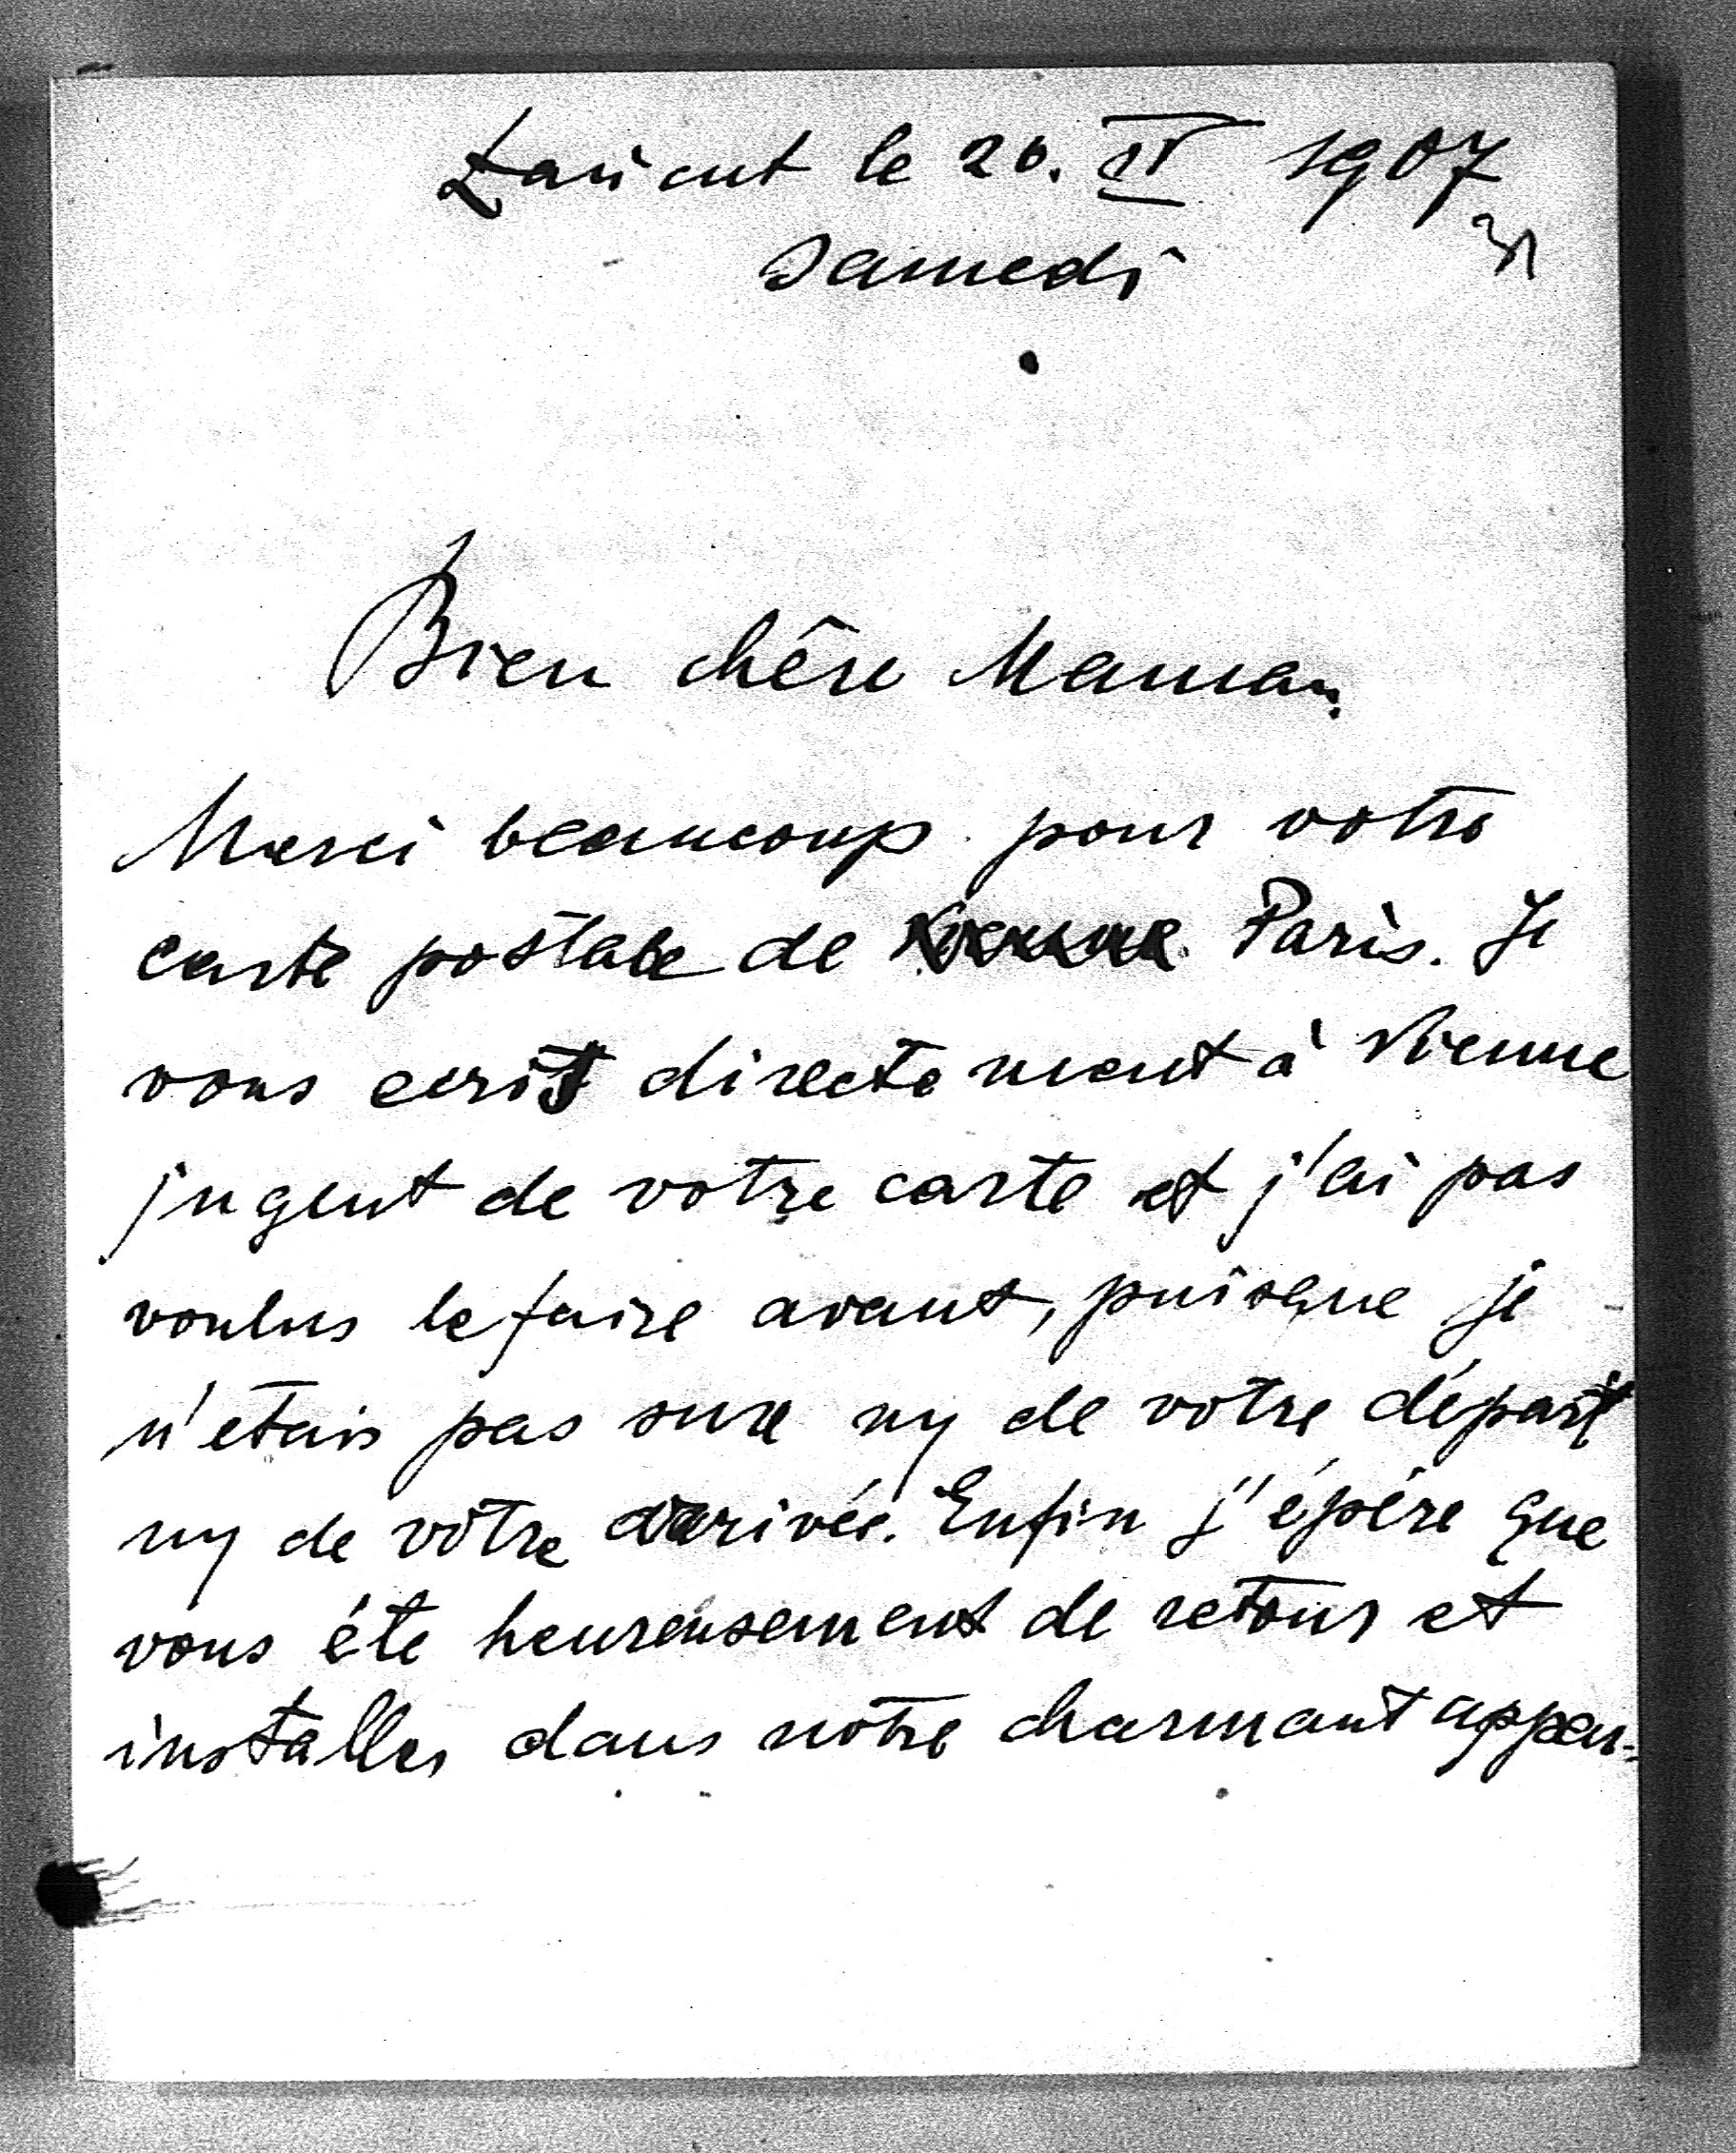 Łańcut le 20. IV 1907
samedi
Bien chêre Maman.
Merci beaucoup pour votre
carte postale de Paris. Je
vous ecris directement à Vienne
jugent de votre carte et j'ai pas
voulus le faire avant, puisque je
n'etais pas sure ny de votre départ
ny de vôtre arrivée. Enfin j'épére que
vous éte heureusement de retour et
installes dans nôtre charmant appar-